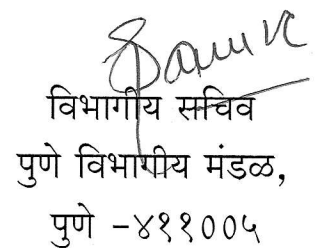 विभागीय सचिव
पुणे विभागीय मंडळ,
पुणे -४११००५